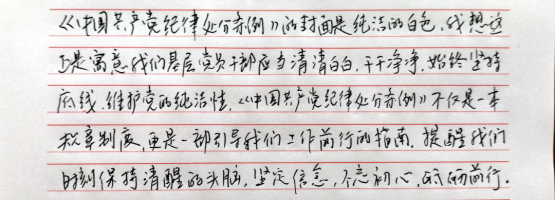 《中国共产党纪律处分条例》的封面是纯洁的白色,我想这
正是寓意我们基层党员干部应当清清白白,干干净净,始终坚持
底线,维护党的纯洁性,《中国共产党纪律处分条例》不仅是一本
规章制度,更是一部引导我们工作前行的指南,提醒我们
时刻保持清醒的头脑,坚定信念,不忘初心,前行.